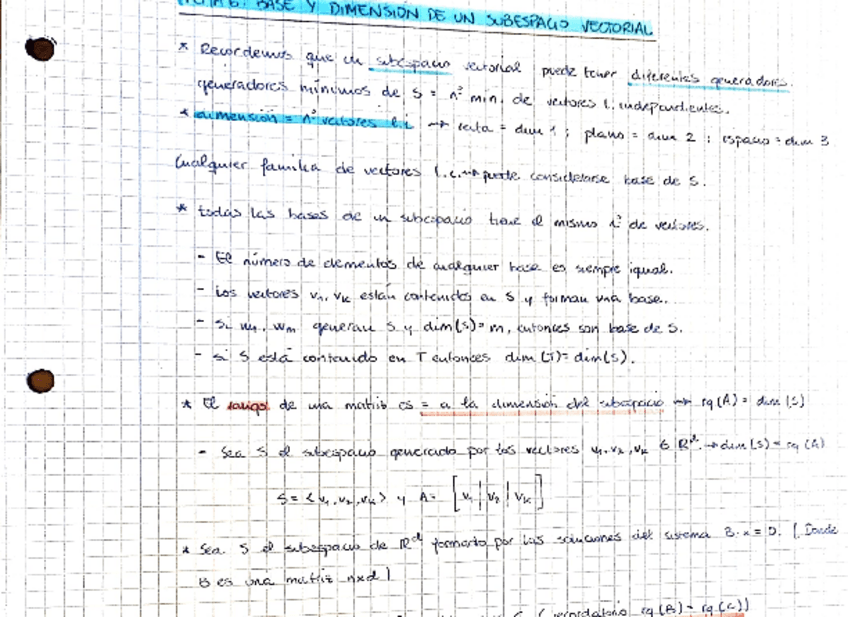 TEMA 6: BASE Y DIMENSIÓN DE UN SUBESPACIO VECTORIAL
* Recordemos que un subespacio vectorial puede tener diferentes generadores.
generadores mínimos de S = nº min. de vectores l. independientes.
* dimensión = nº vectores l.i → recta = dim 1 ; plano = dim 2 ; espacio = dim 3
Cualquier familia de vectores l.i. → puede considerarse base de S.
* todas las bases de un subespacio tiene el mismo nº de vectores.
- El número de elementos de cualquier base es siempre igual.
- Los vectores v₁, vₖ están contenidos en S y forman una base.
- Si w₁, wₘ generan S y dim(S)=m, entonces son base de S.
- si S está contenido en T entonces dim(T)=dim(S).
* El rango de una matriz es = a la dimensión del subespacio → rg(A) = dim(S)
- Sea S el subespacio generado por los vectores v₁, v₂, vₖ ∈ ℝᵈ. → dim(S) = rg(A)
S = <v₁, v₂, vₖ> y A = [v₁ | v₂ | vₖ]
* Sea S el subespacio de ℝᵈ formado por las soluciones del sistema B·x = 0. (Donde
B es una matriz nxd)
(recordatorio rg(B) = rg(C))